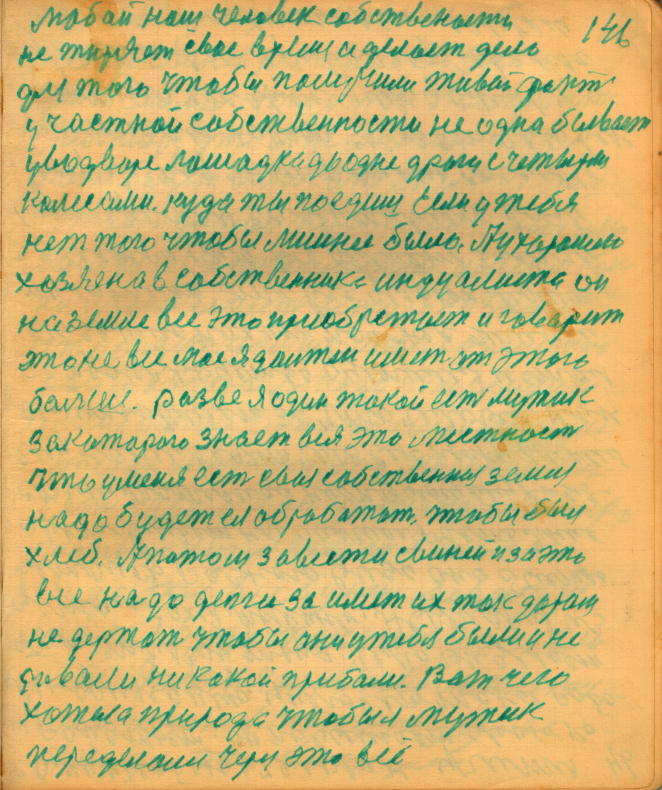 любой наш человек собствености 146
не тиряет свое время и делает дело
для того чтобы получили живой факт
у частной собственности не одна бывает
у во дворе лошадка да одне дроги с четырми
колесами. куда ты поедиш Если у тебя
нет того чтобы мине было. А у хорошого
хозяена в собственника индуалиста он
на земле все это приобретает и говарит
это не все мое я должен имет от этого
болше. розве я один такой ест мужик
за каторого знает вся это местност
что у меня ест своя собственная земля
надо будет ея обработат, чтобы был
хлеб. А потом завести свиней и за это
все надо денги заимет их так даром
не держат чтобы они у тебя были и не
довали никакой прибали. Вот чего
хотела природа чтобы я мужик
переделали через это всё